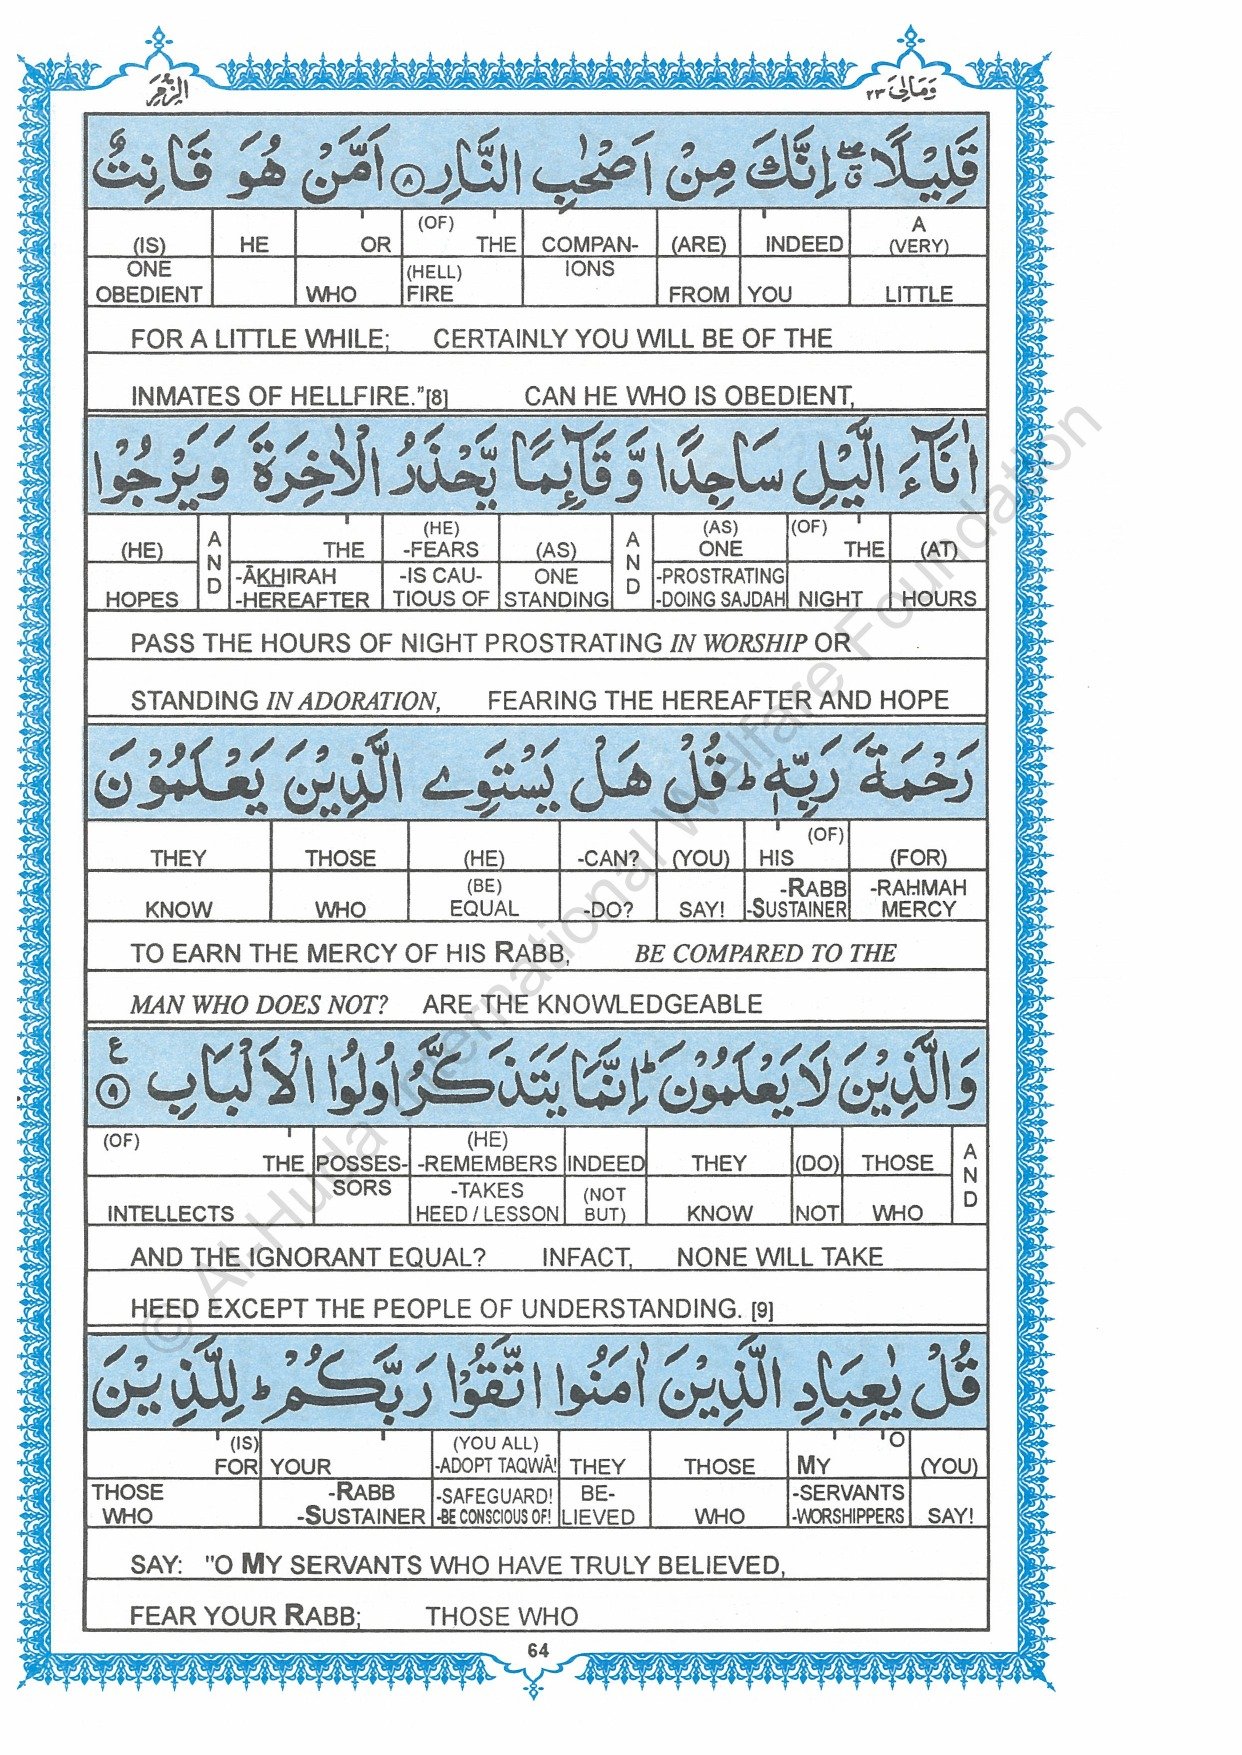 الزمر
ومالى ٢٣
قَلِيْلًا ۖۗ اِنَّكَ مِنْ اَصْحٰبِ النَّارِ ۸ اَمَّنْ هُوَ قَانِتٌ
(IS) HE OR (OF) THE COMPAN- (ARE) INDEED A (VERY)
ONE OBEDIENT WHO (HELL) FIRE IONS FROM YOU LITTLE
FOR A LITTLE WHILE; CERTAINLY YOU WILL BE OF THE
INMATES OF HELLFIRE.”[8] CAN HE WHO IS OBEDIENT,
اٰنَآءَ الَّيْلِ سَاجِدًا وَّقَآئِمًا يَّحْذَرُ الْاٰخِرَةَ وَيَرْجُوْا
(HE) AND THE (HE) -FEARS (AS) AND (AS) ONE (OF) THE (AT)
HOPES -ĀKHIRAH -HEREAFTER -IS CAU- TIOUS OF ONE STANDING -PROSTRATING -DOING SAJDAH NIGHT HOURS
PASS THE HOURS OF NIGHT PROSTRATING IN WORSHIP OR
STANDING IN ADORATION, FEARING THE HEREAFTER AND HOPE
رَحْمَةَ رَبِّهٖ ؕ قُلْ هَلْ يَسْتَوِى الَّذِيْنَ يَعْلَمُوْنَ
THEY THOSE (HE) -CAN? (YOU) HIS (OF) (FOR)
KNOW WHO (BE) EQUAL -DO? SAY! -RABB -SUSTAINER -RAHMAH MERCY
TO EARN THE MERCY OF HIS RABB, BE COMPARED TO THE
MAN WHO DOES NOT? ARE THE KNOWLEDGEABLE
وَالَّذِيْنَ لَا يَعْلَمُوْنَ ؕ اِنَّمَا يَتَذَكَّرُ اُولُوا الْاَلْبَابِ ۹ ع
(OF) THE POSSES- (HE) -REMEMBERS INDEED THEY (DO) THOSE AND
INTELLECTS SORS -TAKES HEED / LESSON (NOT BUT) KNOW NOT WHO
AND THE IGNORANT EQUAL? INFACT, NONE WILL TAKE
HEED EXCEPT THE PEOPLE OF UNDERSTANDING. [9]
قُلْ يٰعِبَادِ الَّذِيْنَ اٰمَنُوا اتَّقُوْا رَبَّكُمْ ؕ لِلَّذِيْنَ
(IS) FOR YOUR (YOU ALL) -ADOPT TAQWĀ! THEY THOSE MY O (YOU)
THOSE WHO -RABB -SUSTAINER -SAFEGUARD! -BE CONSCIOUS OF! BE- LIEVED WHO -SERVANTS -WORSHIPPERS SAY!
SAY: "O MY SERVANTS WHO HAVE TRULY BELIEVED,
FEAR YOUR RABB; THOSE WHO
64
© Al-Huda International Welfare Foundation